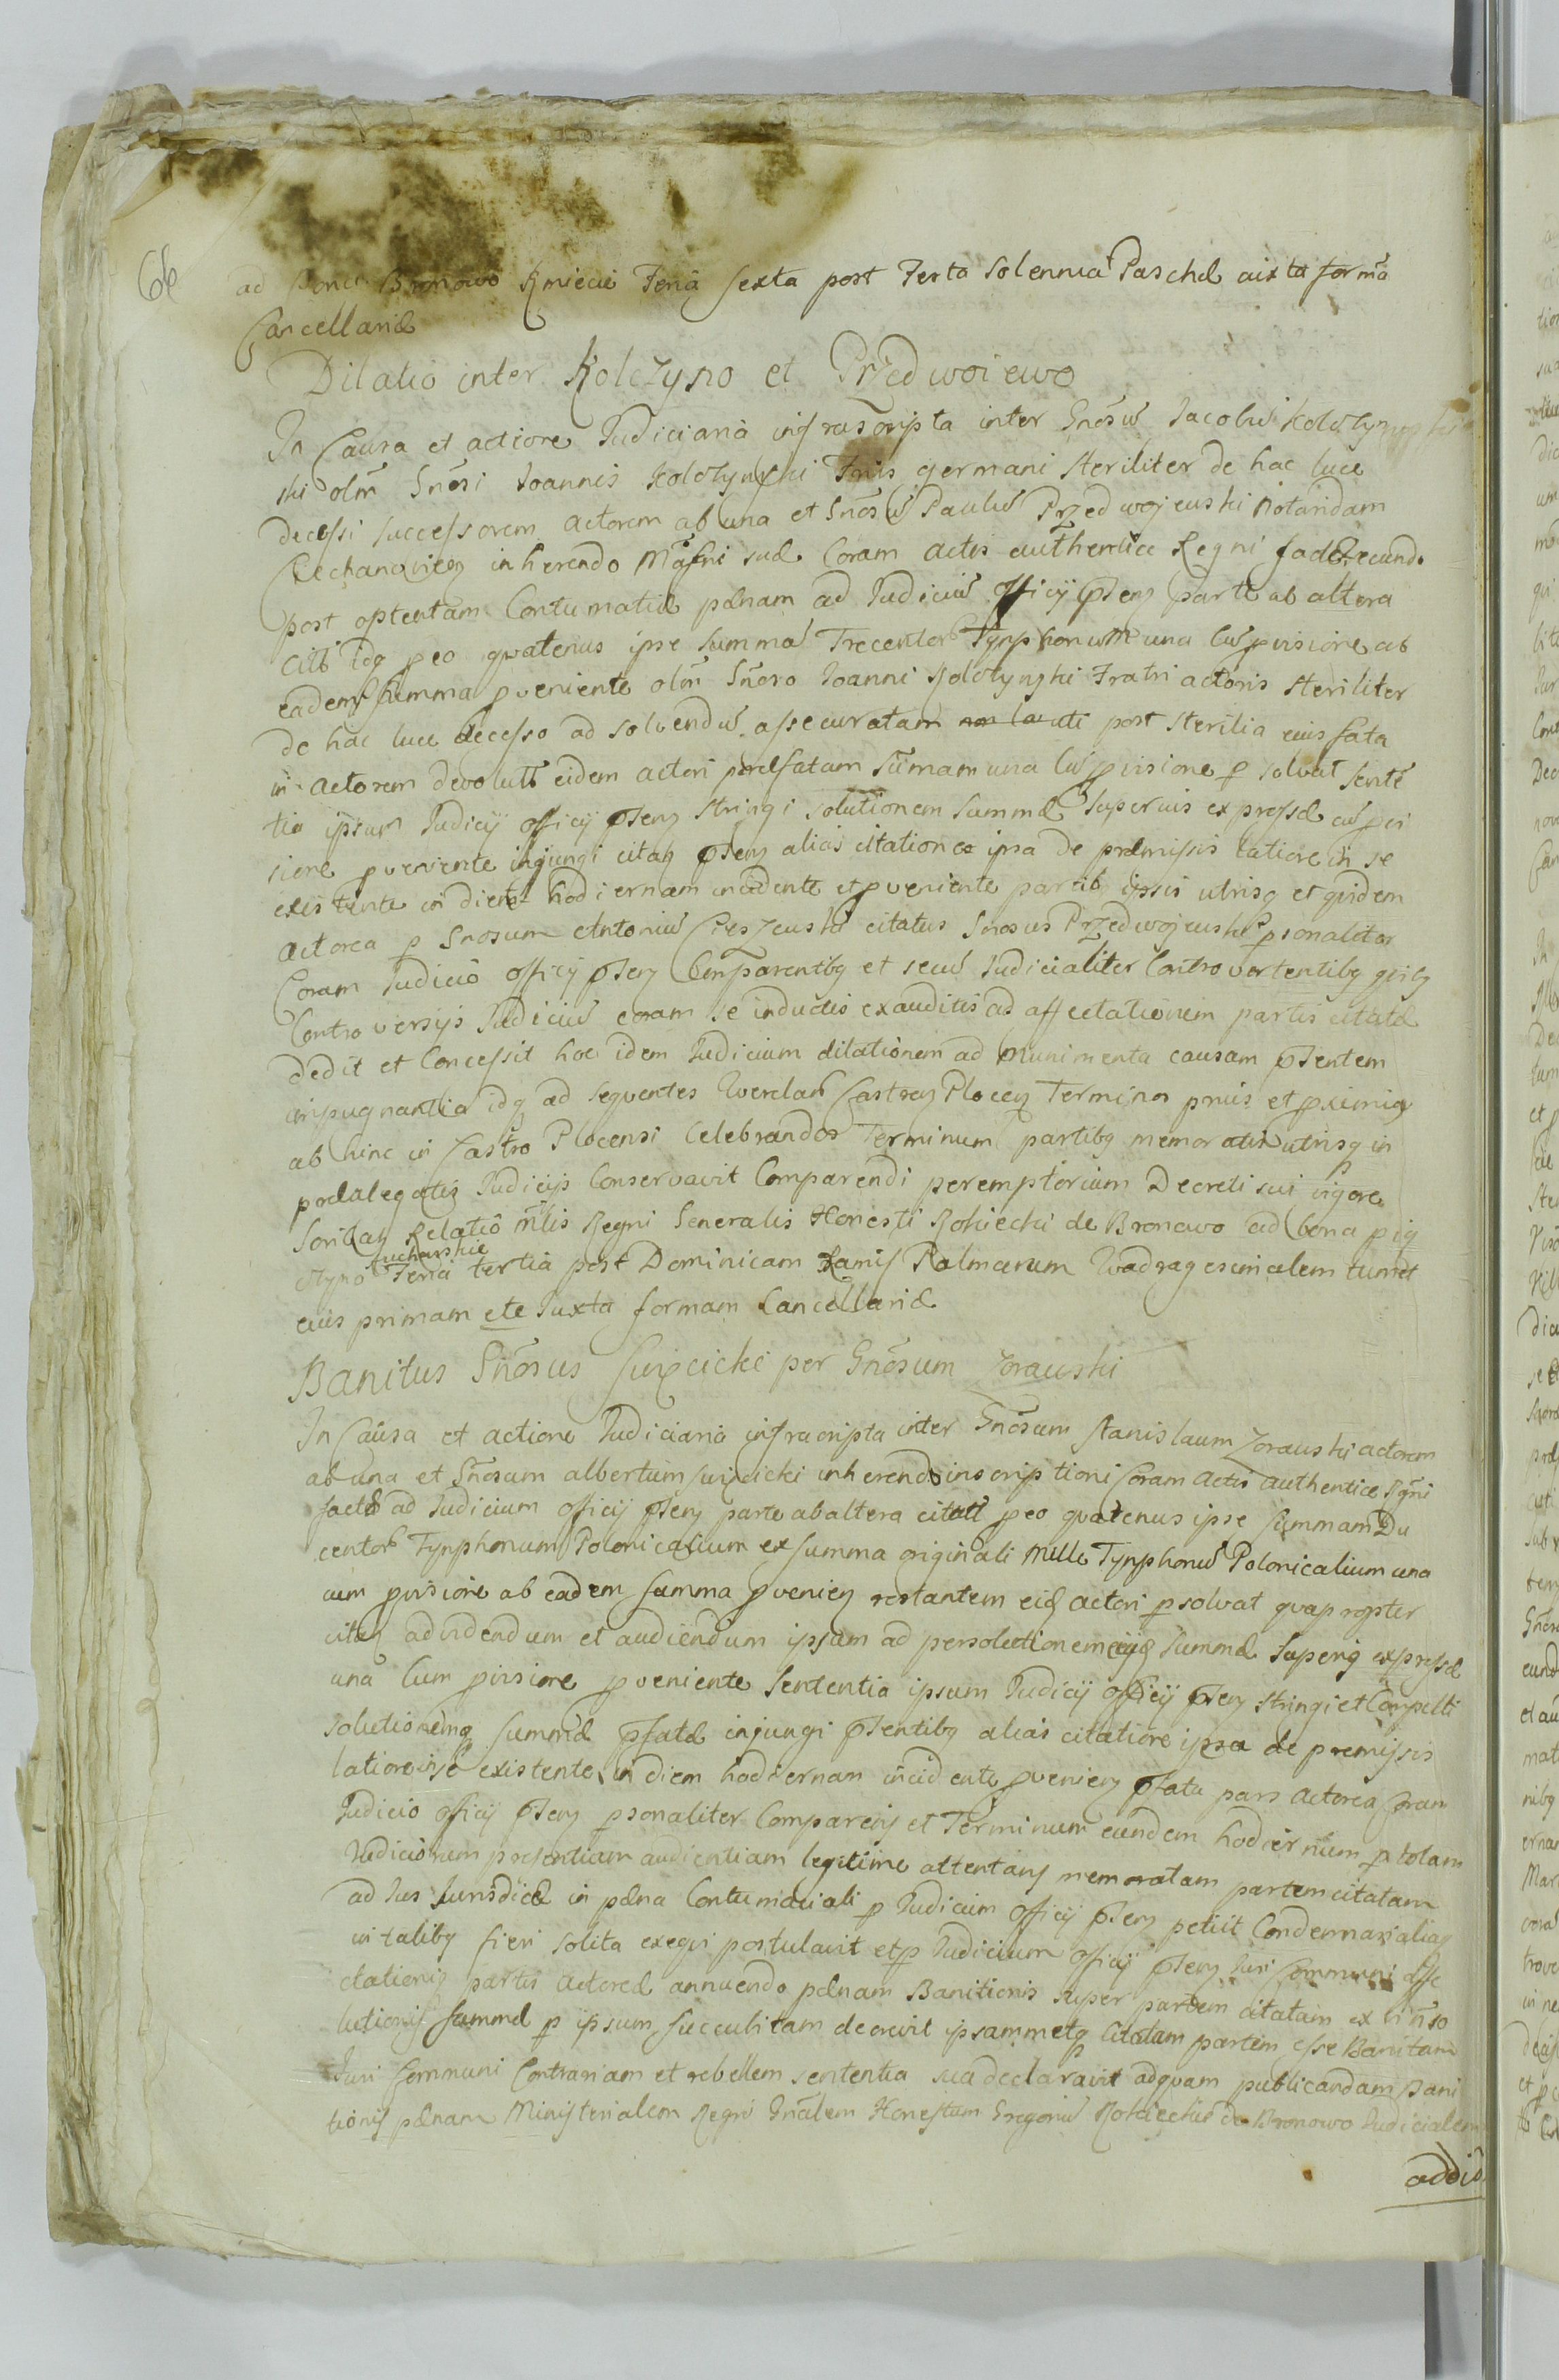 66
ad Bona Bronowo Kmiecie Feria sexta post Festa Solennia Paschæ iuxta formã
Cancellariæ
Dilatio inter Kolczyno et Przedwoiewo
In Causa et actione Judiciaria infrascripta inter Gnõsũ Jacobũ Kolczynski
olm Gnõsi Joannis Kolczynski Fris germani steriliter de hac luce
decessi successorem actorem ab una et Gnõsũ Paulũ Przedwojewski Notarium
Ciechanovien inherendo suæ Coram actis authenticis Regni factæ
post optentam Contumatiæ pænam ad Judiciũ Officij pñsens parte ab altera
citt idq peo quatenus ipse summã Trecentor Tynphonum una cũ pvisione ab
eadem summa pveniente olm Gnõso Joanni Kolczynski Fratri actoris steriliter
de hac luce decesso ad solvendũ assecuratam post sterilia eius fata
in Actorem devolutã eidem actori præfatam sũmam una cũ pvisione p solvat senten
tia ipsum Judicij officij pñsens stringi solutionem summæ superius expressæ cũ pvi
sione pveniente injungi citan pñsen alias citatione ipsa de præmissis latiore in se
existente in diem hodiernam incidente et pveniente partib ipsis utrisq et quidem
actorea p Gnosum Antoniũ Cieszewski citatus Gnosus Przedwojewski psonaliter
Coram Judicio officij pñsen Comparentibq et secũ Judicialiter Controvertentibq quibq
Controversijs Judiciũ coram se inductis exauditis ad affectationem partis citatæ
dedit et Concessit hoc idem Judicium dilationem ad munimenta causam pñsentem
inpugnantia idq ad sequentes Querelarũ Castren Plocen Terminos prius et pximiq
ab hinc in Castro Plocensi Celebrandos Terminum partibq memoratis utrisq in
prælalegatis Judicijs Conservavit Comparendi peremptorium Decreti sui vigore
Relatio mlis Regni Generalis Honesti Rokiecki de Bronowo ad bona
sucharskie
Feria tertia post Dominicam Ramis Palmarum Quadragesimalem
eius primam etc Juxta formam Cancellariæ
Banitus Gnõsus per Gnõsum Zorawski
In Caũsa et actione Judiciaria infrascripta inter Gnõsum Stanislaum Zorawski actorem
ab una et Gnõsum albertum inherendo inscriptioni Coram Actis authentice Rgni
factæ ad Judicium officij pñsen parte ab altera citatũ peo quatenus ipse summam Du
centor Tynphonum Polonicalium ex summa originali mille Tynphonũ Polonicalium una
cum pvisione ab eadem summa pvenien restantem eidẽ actori psolvat quapropter
citan ad videndum et audiendum ipsum ad persolutionem ejusd summæ superiq expressæ
una Cum pvisione pveniente Sententia ipsum Judicij officij pñsen stringi et Compelli
solutionemq summæ pfatæ injungi pñsentibq alias citatione ipsa de premissis
latiore in se existente in diem hodiernam incidente pvenien pfata pars actorea Coram
Judicio officij pñsen psonaliter Comparens et Terminum eundem hodiernum p totam
Judiciorum presentiam audientiam legitime attentans memoratam partem citatam
ad Jus Jurisdicæ in pæna Contumaciali p Judicium officij pñsen petiit Condemnari aliaq
in talibq fieri solita exequi postulavit et p Judicium officij pñsen Juri Communi affe
ctationiq partis actoreæ annuendo pænam Banitionis super partem citatam ex
lutionis summæ p ipsum succubitam decrevit ipsammetq Citatam partem esse Banitam
Juri Communi Contrariam et rebellem sententia sua declaravit ad quam publicandam Bani
tionis pænam Ministerialem Regni Gnãlem Honestum Gregoriũ Rokieckiũ de Bronowo Judicialem
addid